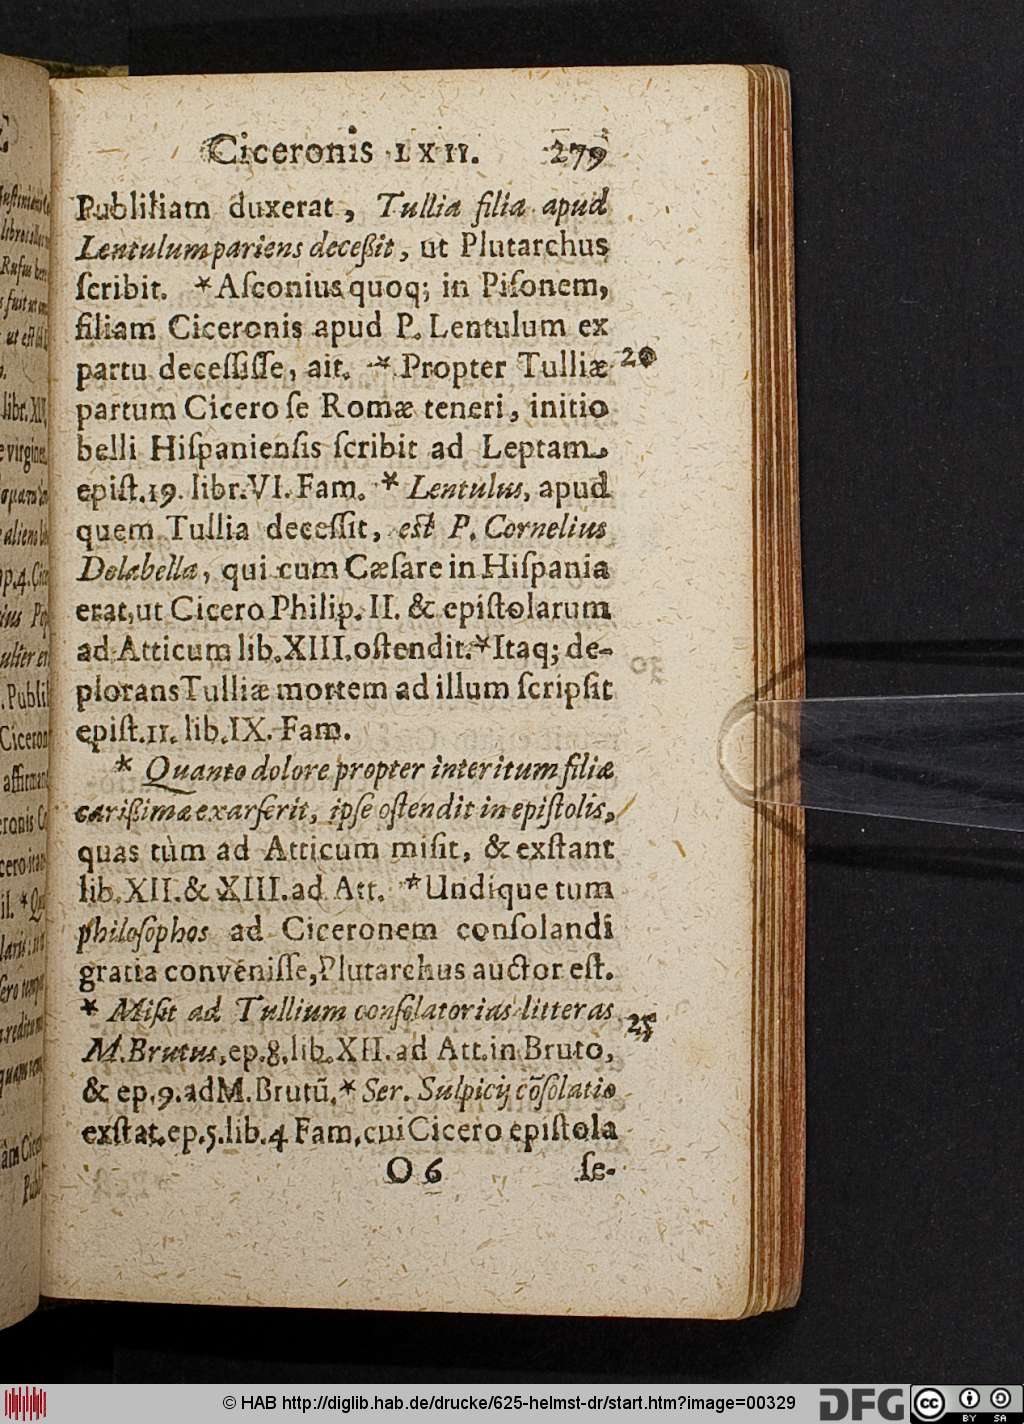 Ciceronis LXII. 279
Publiliam duxerat, Tullia filia apud
Lentulum pariens deceßit, ut Plutarchus
ſcribit. *Aſconius quoq; in Piſonem,
filiam Ciceronis apud P. Lentulum ex
partu deceſſiſſe, ait. * Propter Tulliæ 20
partum Cicero ſe Romæ teneri, initio
belli Hiſpanienſis ſcribit ad Leptam
epiſt. 19. libr. VI. Fam. * Lentulus, apud
quem Tullia deceſſit, eſt P. Cornelius
Dolabella, qui cum Cæſare in Hiſpania
erat, ut Cicero Philip. II. & epiſtolarum
ad Atticum lib. XIII. oſtendit. *Itaq; de-
plorans Tulliæ mortem ad illum ſcripſit
epiſt. 11. lib. IX. Fam.
* Quanto dolore propter interitum filiæ
carißimæ exarſerit, ipſe oſtendit in epiſtolis,
quas tùm ad Atticum miſit, & exſtant
lib. XII. & XIII. ad Att. *Undique tum
philoſophos ad Ciceronem conſolandi
gratia conveniſſe, Plutarchus auctor eſt.
* Miſit ad Tullium conſolatorias litteras 25
M. Brutus, ep. 8. lib. XII. ad Att. in Bruto,
& ep. 9. ad M. Brutū. * Ser. Sulpicij cōſolatio
exſtat. ep. 5. lib. 4 Fam. cui Cicero epiſtola
O 6 ſe-
libr. XII.
e virgine,
p. 4. Cice
. Publil
Ciceron
affirmant
© HAB http://diglib.hab.de/drucke/625-helmst-dr/start.htm?image=00329
DFG
cc
BY SA